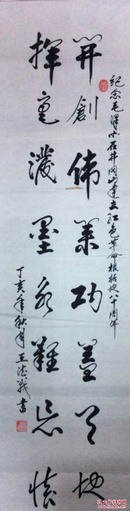 紀念毛澤东在井岡山建立红色革命根據地八十周年
開創偉業功蓋天地
揮毫潑墨永難忘懷
丁亥年秋月王
書